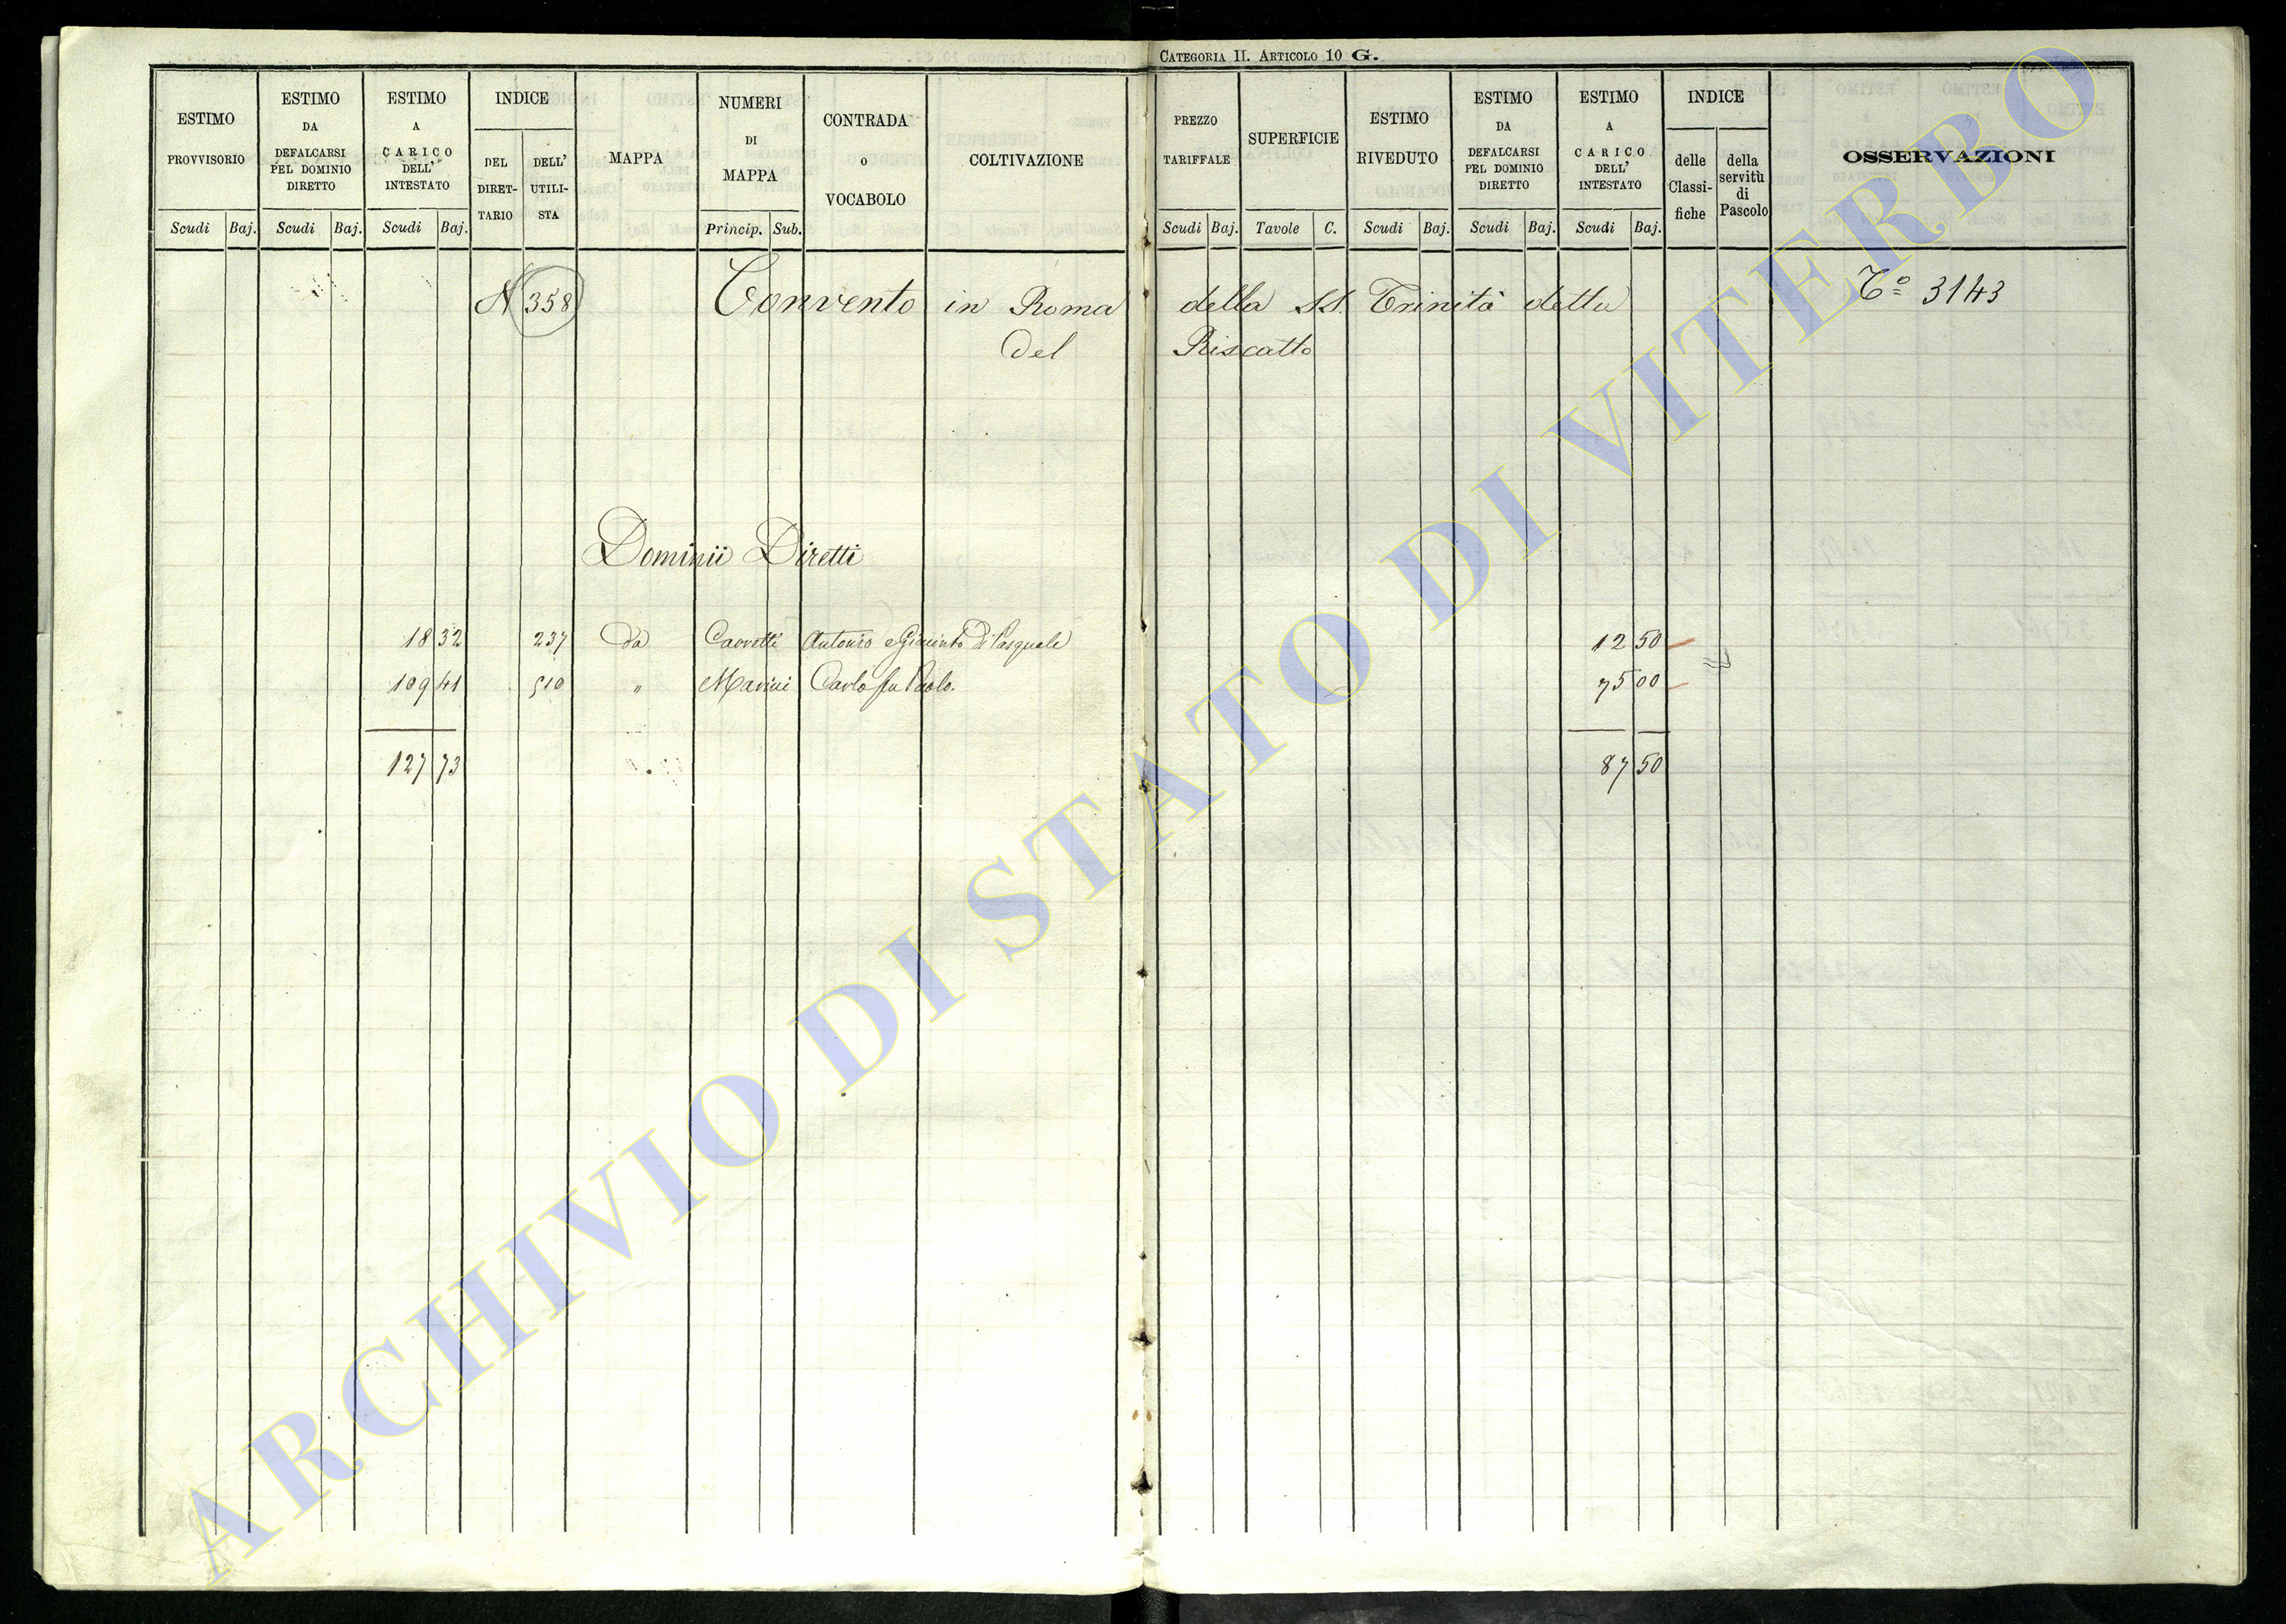 CATEGORIA II. ARTICOLO 10 G.
ESTIMO PROVVISORIO
Scudi Baj.
ESTIMO DA DEFALCARSI PEL DOMINIO DIRETTO
Scudi Baj.
ESTIMO A CARICO DELL' INTESTATO
Scudi Baj.
INDICE
DEL DIRET-TARIO
DELL' UTILI-STA
MAPPA
NUMERI DI MAPPA
Princip. Sub.
CONTRADA O VOCABOLO
COLTIVAZIONE
PREZZO TARIFFALE
Scudi Baj.
SUPERFICIE
Tavole C.
ESTIMO RIVEDUTO
Scudi Baj.
ESTIMO DA DEFALCARSI PEL DOMINIO DIRETTO
Scudi Baj.
ESTIMO A CARICO DELL' INTESTATO
Scudi Baj.
INDICE
delle Classi-fiche
della servitù di Pascolo
OSSERVAZIONI
N 358 Convento in Roma della SS. Trinità detta Tº 3143
Del Riscatto
Dominii Diretti
18 32 237 da Antonio e Giacinto di Pasquale 12 50
109 41 510 " Marini Carlo fu Paolo. 75 00
127 73 87 50
ARCHIVIO DI STATO DI VITERBO